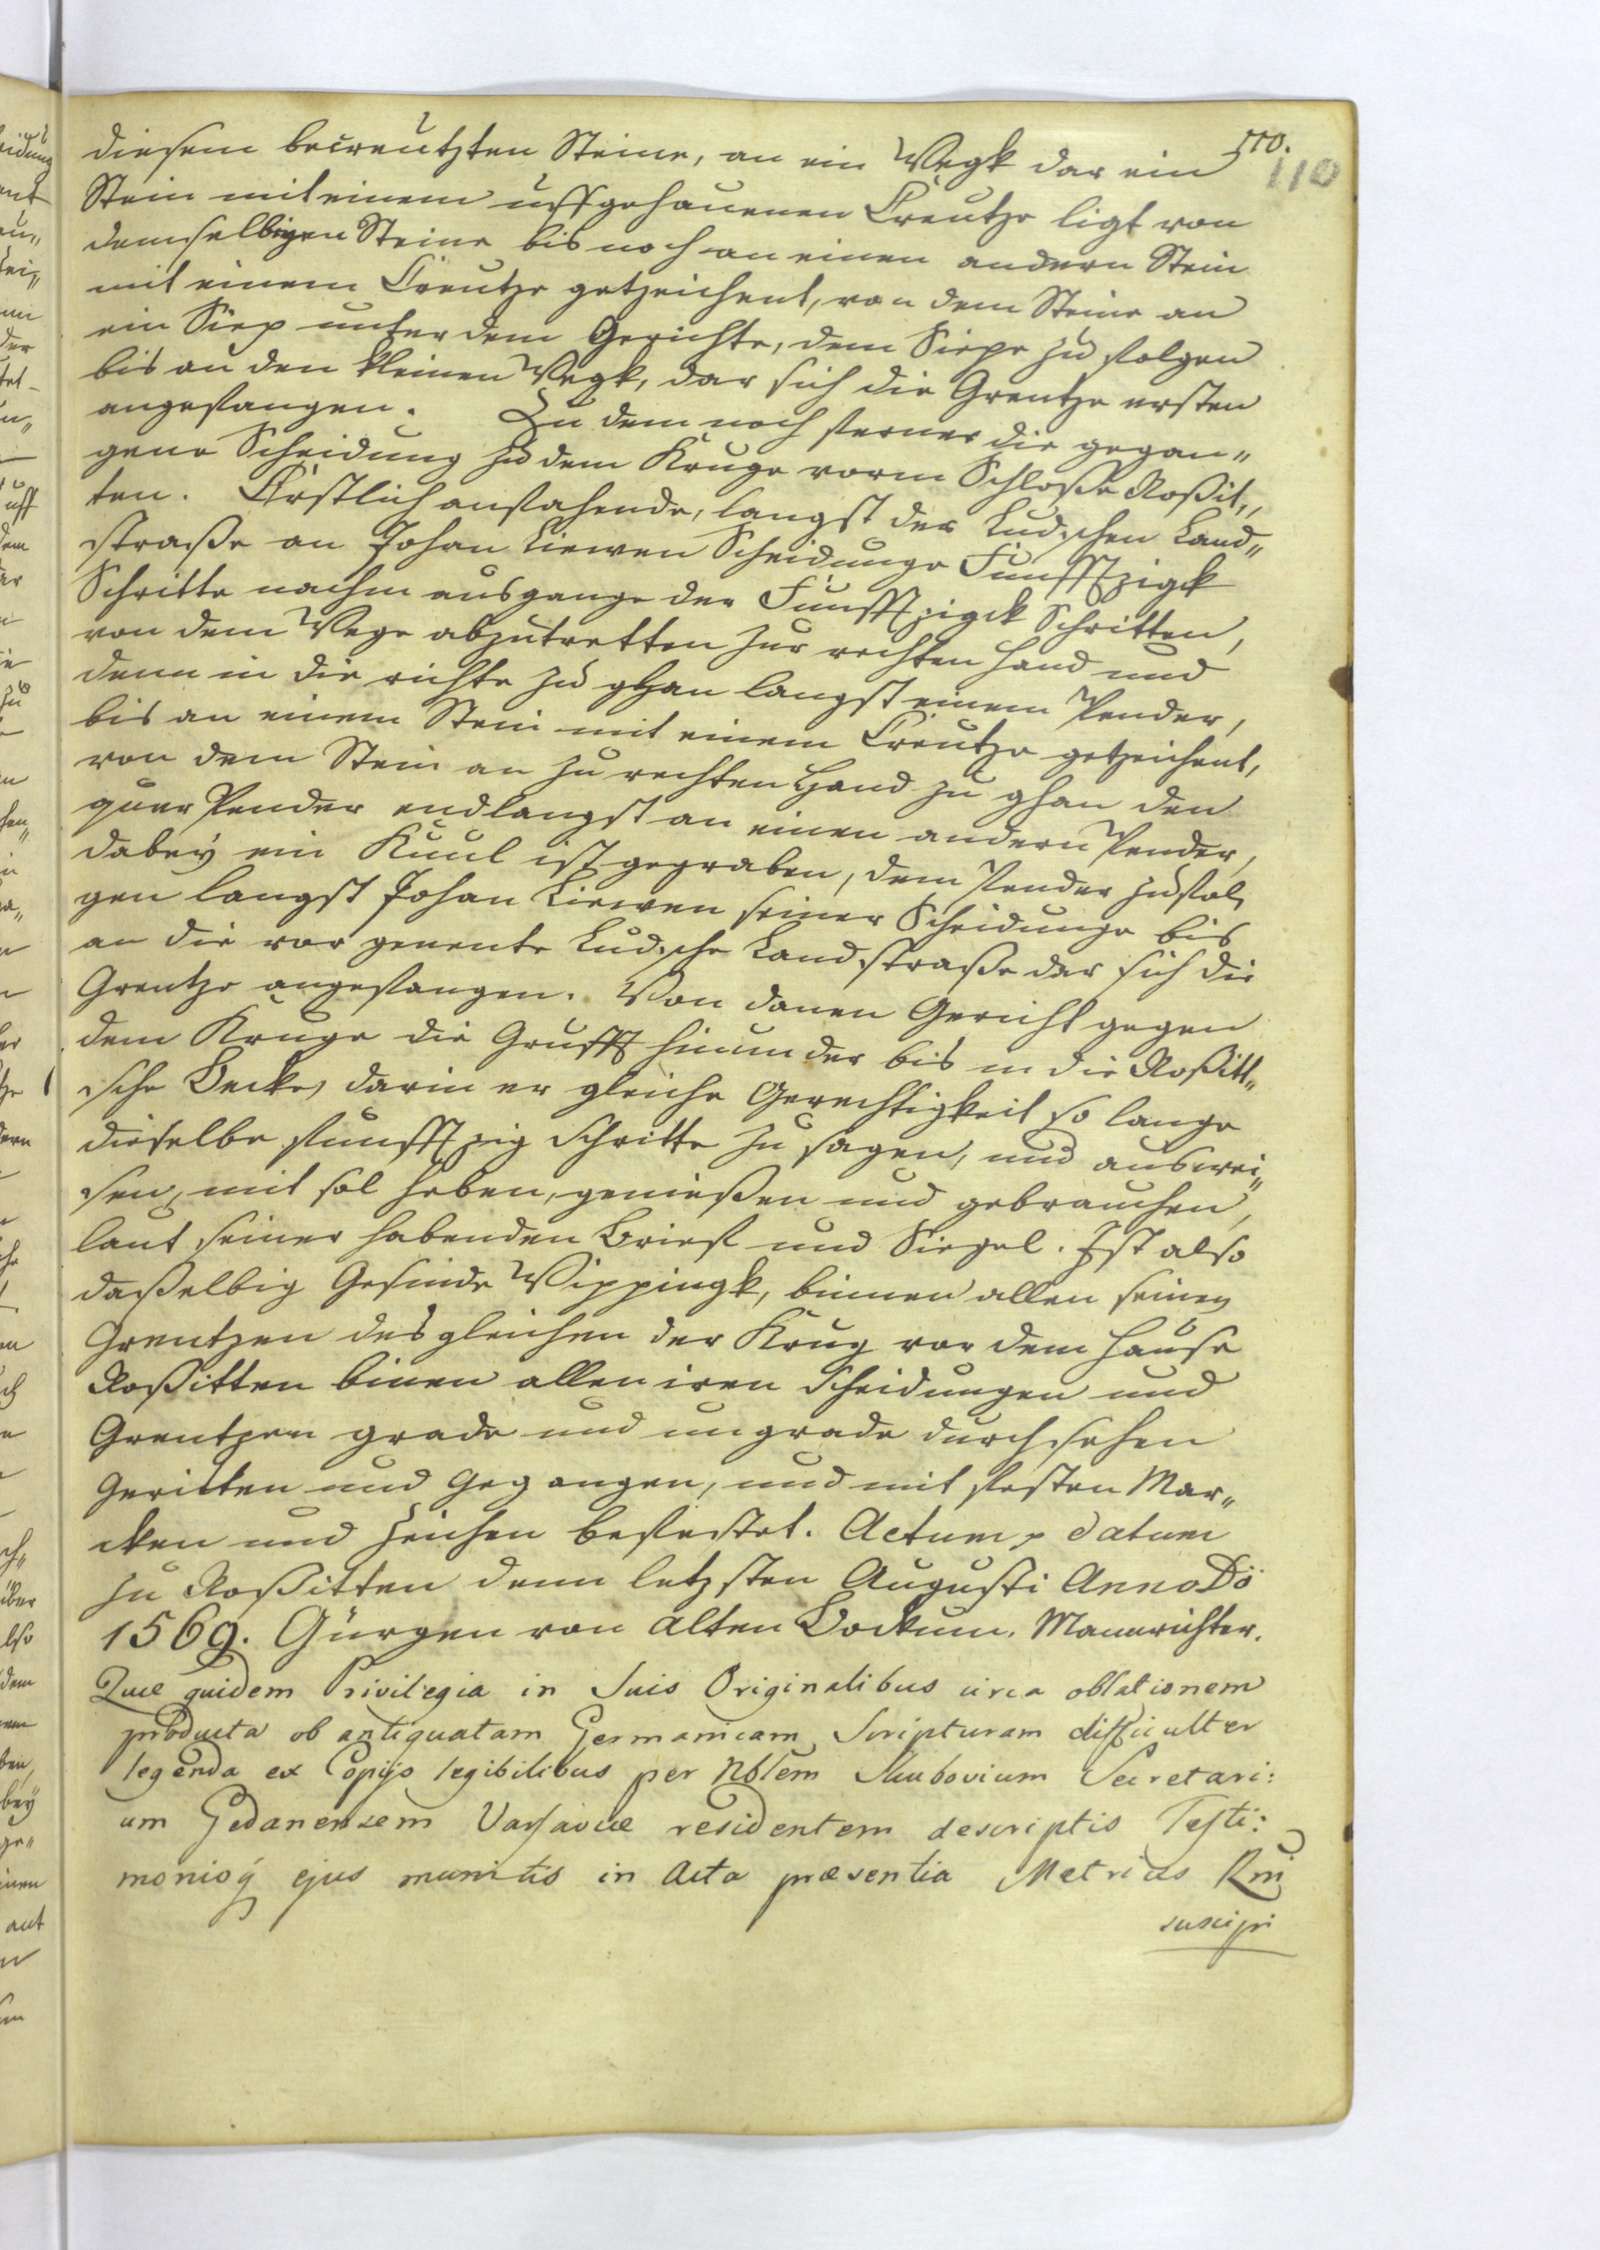 110.
110
diesem becreutzten Steine, an ein Wegk dar ein
Stein mit einem uffgehauenen Creutze ligt von
demselbigen Steine bis noch an einen andern Stein
mit einem Creutze getzeichent, von dem Steine an
ein Siep unter dem Gerichte, dem Siepe zu folgen
bis an den kleinen Wegk, dar sich die Grentze ersten
angefangen. Zu dem noch ferner die gegan„
gene Scheidung zu dem Kruge vorm Schloße Roßit„
ten. Erstlich anfahende, langst der Ludschen Land„
straße an Johan Liewen Scheidunge Funfftzigk
Schritte nachm ausgange der Funfftzigck Schritten,
von dem Wege abzutretten zur rechten Hand und
denn in die richte zu ghan langst einem Pender,
bis an einem Stein mit einem Creutze getzeichent,
von dem Stein an zu rechten Hand zu ghan den
quer Pender endlangst an einen andern Pender,
dabey ein Kuul ist gegraben, dem Pender zu fol„
gen langst Johan Liewen seiner Scheidunge bis
an die vor genente Ludsche Landstraße dar sich die
Grentze angefangen. Von danen Gericht gegen
dem Kruge die Grufft hinunder bis in die Roßitt„
sche Becke, darin er gleiche Gerechtigkeit so lange
dieselbe funfftzig Schritte zu sagen, und auswei„
sen, mit sol heben, genießen und gebrauchen,
laut seiner habenden Brief und Siegel. Ist also
daßelbig Gesinde Wippingk, binnen allen seinen
Grentzen des gleichen der Krug vor dem Hause
Roßitten binen allen iren Scheidungen und
Grentzen grade und ungrade durchsehen
Geritten und Gegangen, und mit festen Mar„
cken und Zeichen befestet. Actum, datum
zu Roßitten denn letzsten Augusti Anno Dõ
1569. Gürgen von alten Bockum. Mannrichter.
Quæ quidem Privilegia in Suis Originalibus circa oblationem
producta ob antiquatam Germanicam Scripturam difficulter
legenda ex Copijs legibilibus per Nblem Skubovium Secretari:
um Gedanensem Varsaviæ residentem descriptis Testi:
monioq ejus munitis in Acta præsentia Metrices Rni
suscipi